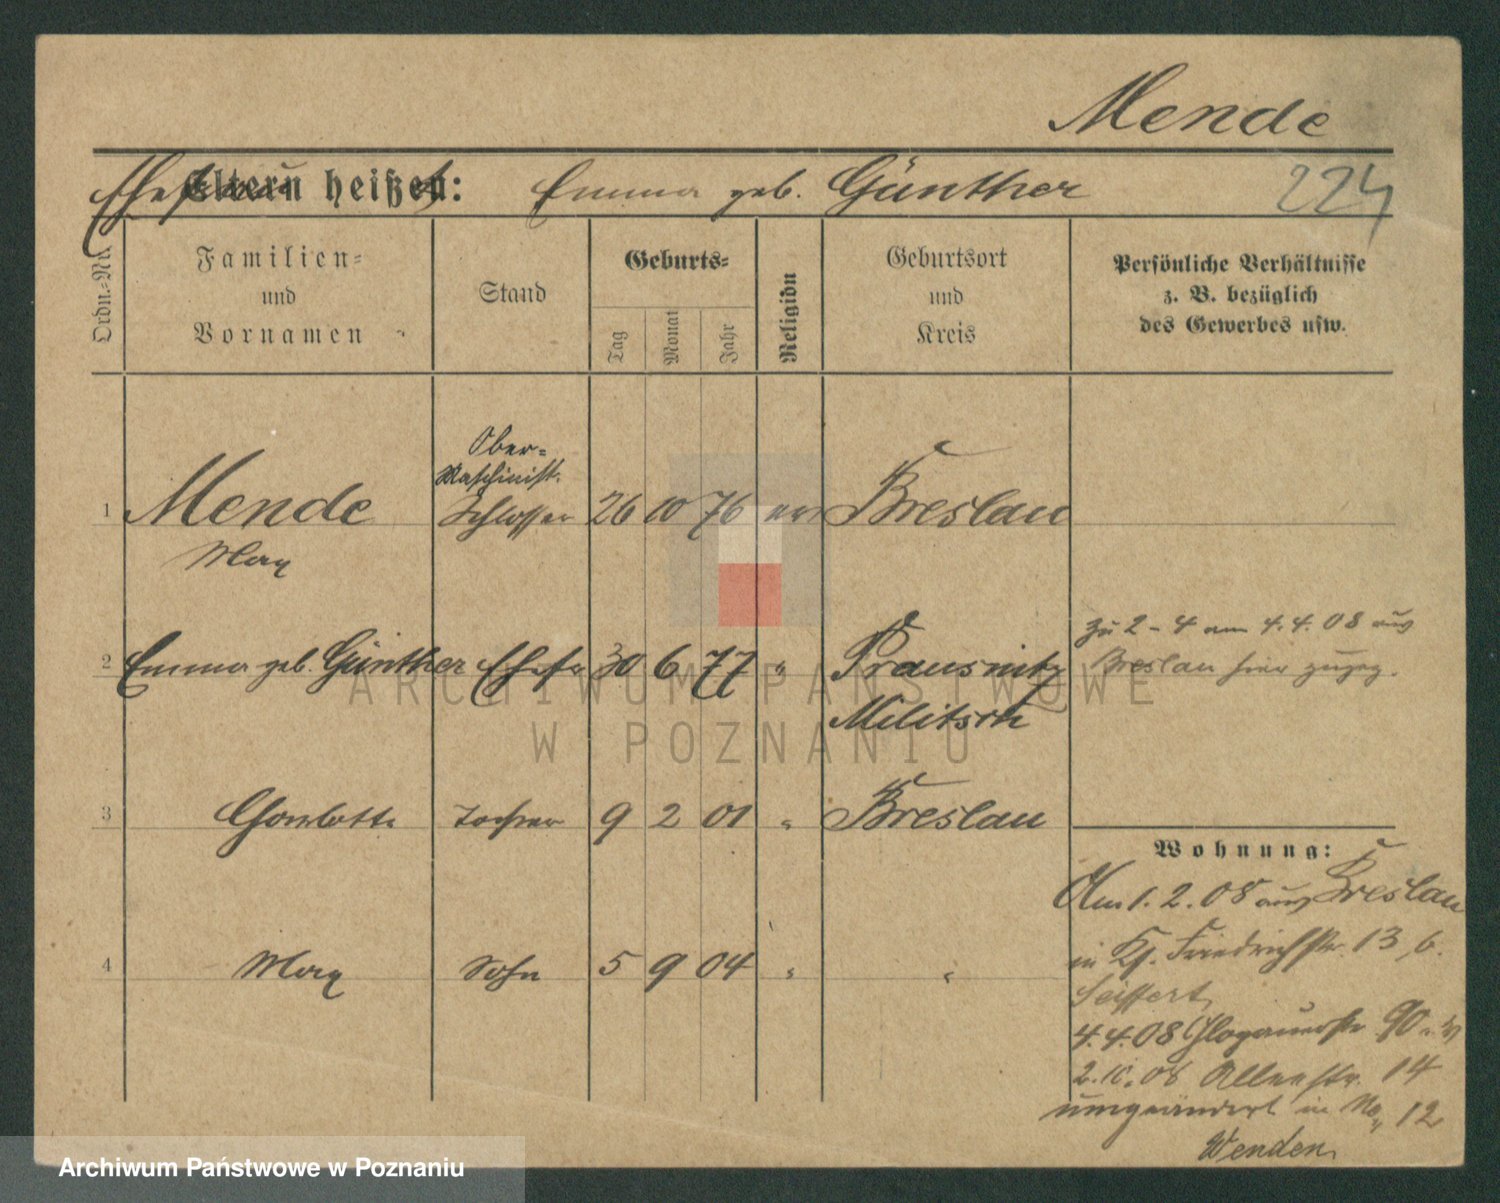 Mende
Eltern heißen: Emma geb. Günther
224
Ordn.-Nr.
Familien-
und
Vornamen
Stand
Geburts-
Tag
Monat
Jahr
Religion
Geburtsort
und
Kreis
Persönliche Verhältnisse
z. B. bezüglich
des Gewerbes usw.
Ober-
Maschinist.
1 Mende Schlosser 26 10 76 ev Breslau
Max
zu 2 - 4 am 4.4.08 aus
2 Emma geb. Günther Ehefr 30 6 77 " Prausnitz Breslau hier zugez.
Militsch
3 Charlotte Tochter 9 2 01 " Breslau
Wohnung:
Am 1.2.08 aus Breslau
4 Max Sohn 5 9 04 " "
in Friedrichstr. 13 b.
Seiffert
4.4.08 Glogauerstr 90
2.10.08 Alleestr. 14
umgeändert in No 12
Wenden
ARCHIWUM PAŃSTWOWE
W POZNANIU
Archiwum Państwowe w Poznaniu